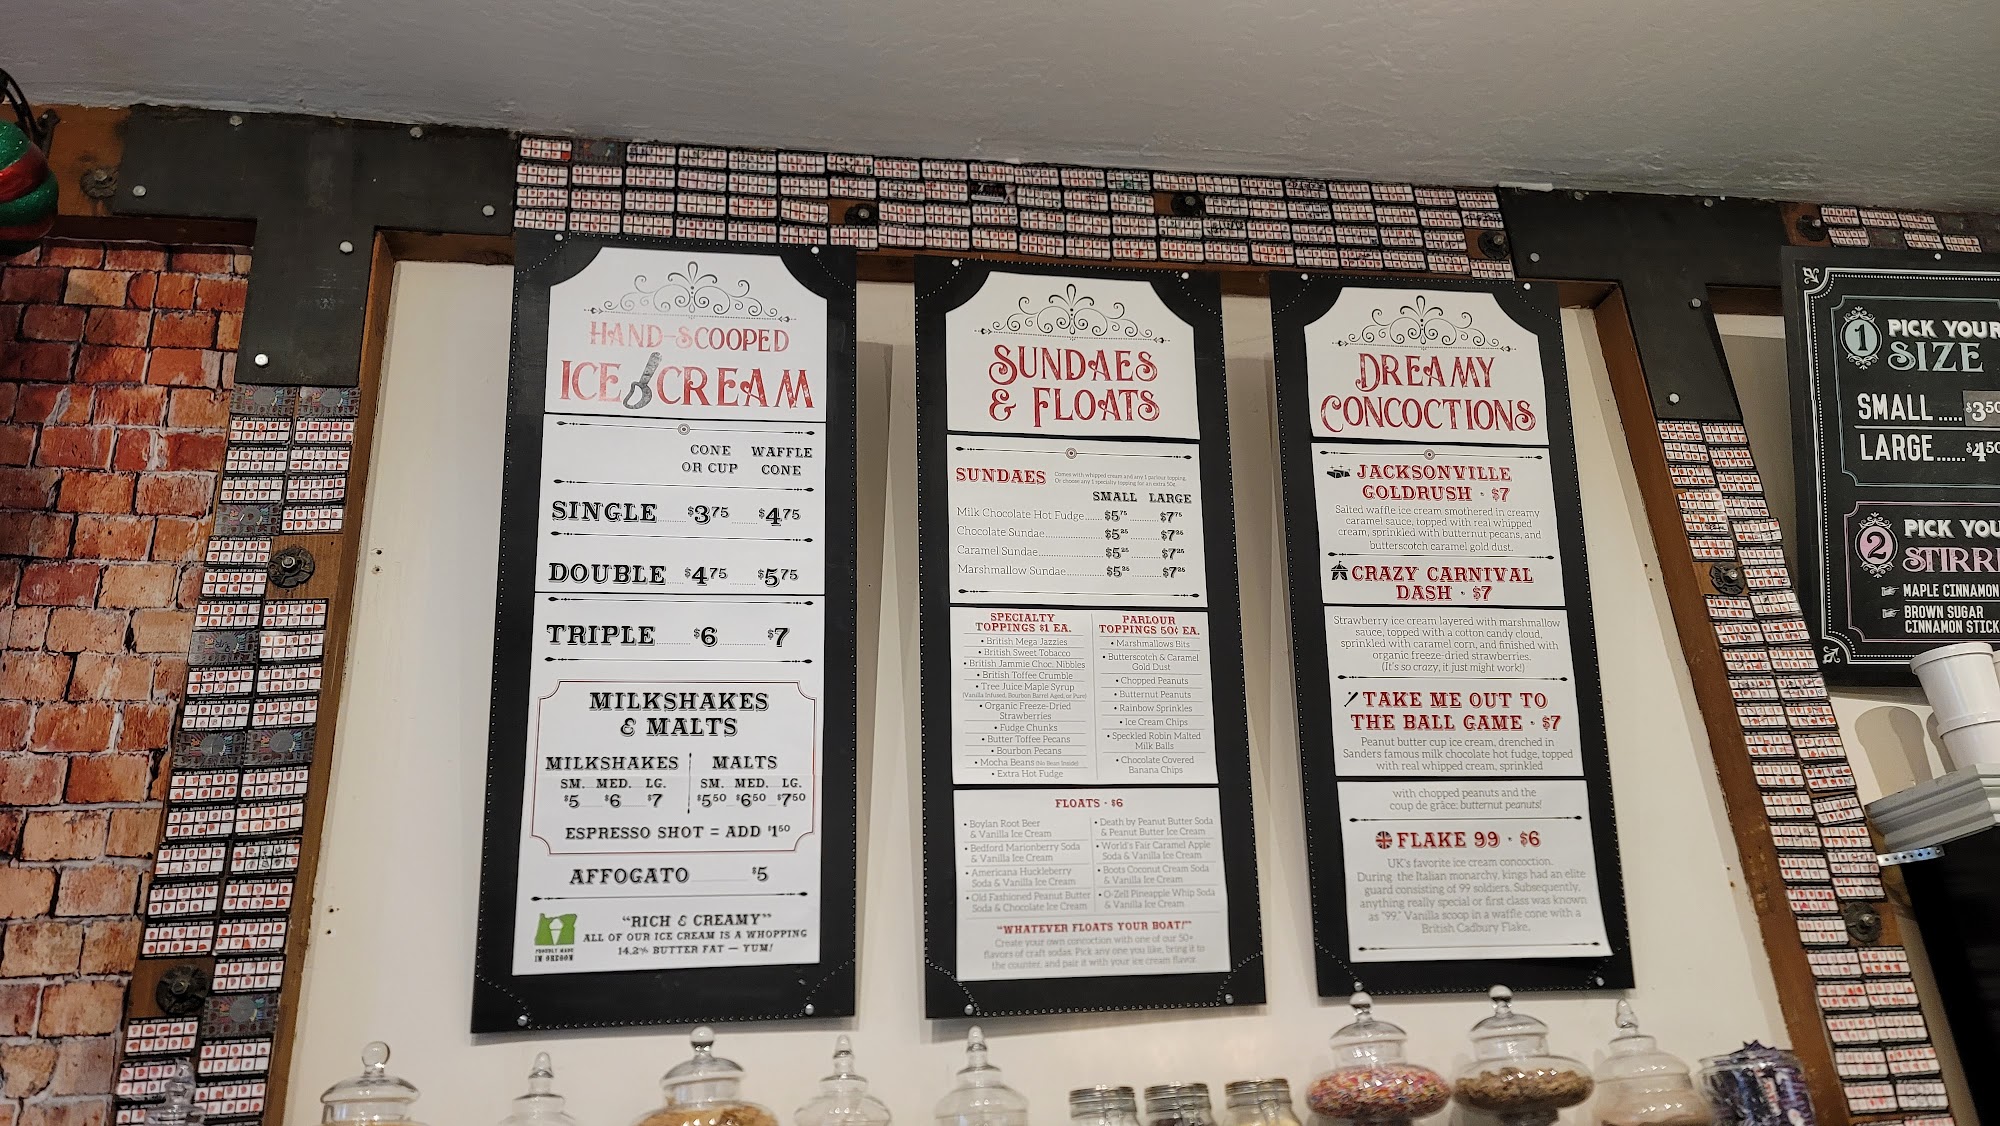 HAND-SCOOPED
ICE CREAM
CONE OR CUP WAFFLE CONE
SINGLE $3.75 $4.75
DOUBLE $4.75 $5.75
TRIPLE $6 $7
MILKSHAKES
& MALTS
MILKSHAKES MALTS
SM. MED. LG. SM. MED. LG.
$5 $6 $7 $5.50 $6.50 $7.50
ESPRESSO SHOT = ADD $1.50
AFFOGATO $5
PROUDLY MADE
IN OREGON
"RICH & CREAMY"
ALL OF OUR ICE CREAM IS A WHOPPING
14.2% BUTTER FAT — YUM!
SUNDAES
& FLOATS
SUNDAES Comes with whipped cream and any 1 parlour topping.
Or choose any 1 specialty topping for an extra 50¢
SMALL LARGE
Milk Chocolate Hot Fudge...... $5.75 ......... $7.75
Chocolate Sundae............ $5.25 ......... $7.25
Caramel Sundae............ $5.25 ......... $7.25
Marshmallow Sundae......... $5.25 ......... $7.25
SPECIALTY
TOPPINGS $1 EA.
• British Mega Jazzies
• British Sweet Tobacco
• British Jammie Choc. Nibbles
• British Toffee Crumble
• Tree Juice Maple Syrup
(Vanilla Infused, Bourbon Barrel Aged, or Pure)
• Organic Freeze-Dried
Strawberries
• Fudge Chunks
• Butter Toffee Pecans
• Bourbon Pecans
• Mocha Beans (No Bean Inside)
• Extra Hot Fudge
PARLOUR
TOPPINGS 50¢ EA.
• Marshmallows Bits
• Butterscotch & Caramel
Gold Dust
• Chopped Peanuts
• Butternut Peanuts
• Rainbow Sprinkles
• Ice Cream Chips
• Speckled Robin Malted
Milk Balls
• Chocolate Covered
Banana Chips
FLOATS • $6
• Boylan Root Beer
& Vanilla Ice Cream
• Bedford Marionberry Soda
& Vanilla Ice Cream
• Americana Huckleberry
Soda & Vanilla Ice Cream
• Old Fashioned Peanut Butter
Soda & Chocolate Ice Cream
• Death by Peanut Butter Soda
& Peanut Butter Ice Cream
• World's Fair Caramel Apple
Soda & Vanilla Ice Cream
• Boots Coconut Cream Soda
& Vanilla Ice Cream
• O-Zell Pineapple Whip Soda
& Vanilla Ice Cream
"WHATEVER FLOATS YOUR BOAT!"
Create your own concoction with one of our 50+
flavors of craft sodas. Pick any one you like, bring it to
the counter, and pair it with your ice cream flavor.
DREAMY
CONCOCTIONS
JACKSONVILLE
GOLDRUSH • $7
Salted waffle ice cream smothered in creamy
caramel sauce, topped with real whipped
cream, sprinkled with butternut pecans, and
butterscotch caramel gold dust.
CRAZY CARNIVAL
DASH • $7
Strawberry ice cream layered with marshmallow
sauce, topped with a cotton candy cloud,
sprinkled with caramel corn, and finished with
organic freeze-dried strawberries.
(It's so crazy, it just might work!)
TAKE ME OUT TO
THE BALL GAME • $7
Peanut butter cup ice cream, drenched in
Sanders famous milk chocolate hot fudge, topped
with real whipped cream, sprinkled
with chopped peanuts and the
coup de grâce: butternut peanuts!
FLAKE 99 • $6
UK's favorite ice cream concoction.
During the Italian monarchy, kings had an elite
guard consisting of 99 soldiers. Subsequently,
anything really special or first class was known
as "99." Vanilla scoop in a waffle cone with a
British Cadbury Flake.
1 PICK YOUR
SIZE
SMALL ..... $3.50
LARGE ...... $4.50
2 PICK YOU
STIRRE
MAPLE CINNAMON
BROWN SUGAR
CINNAMON STICK